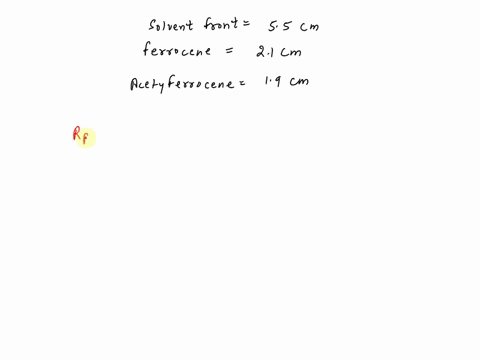 Solvent front = 5.5 cm
ferrocene = 2.1 cm
Acetyferrocene = 1.9 cm
Rf